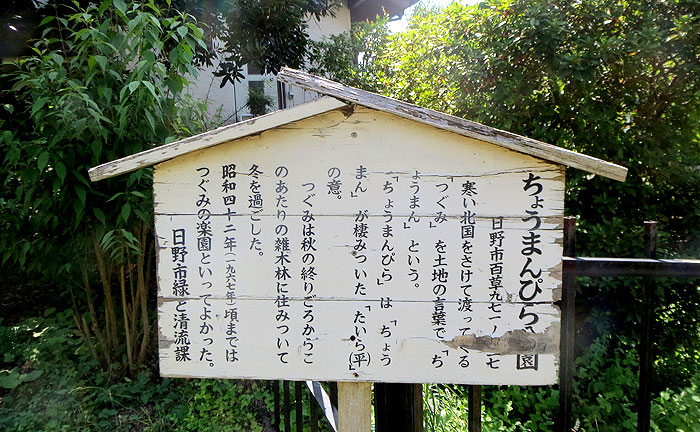 ちょうまんぴら 園
日野市百草九七一ノ 二七
寒い北国をさけて渡ってくる
「つぐみ」を土地の言葉で「ち
ょうまん」という。
「ちょうまんぴら」は「ちょう
まん」が棲みついた「たいら(平)」
の意。
つぐみは秋の終りごろからこ
のあたりの雑木林に住みついて
冬を過ごした。
昭和四十二年(一九六七年)頃までは
つぐみの楽園といってよかった。
日野市緑と清流課